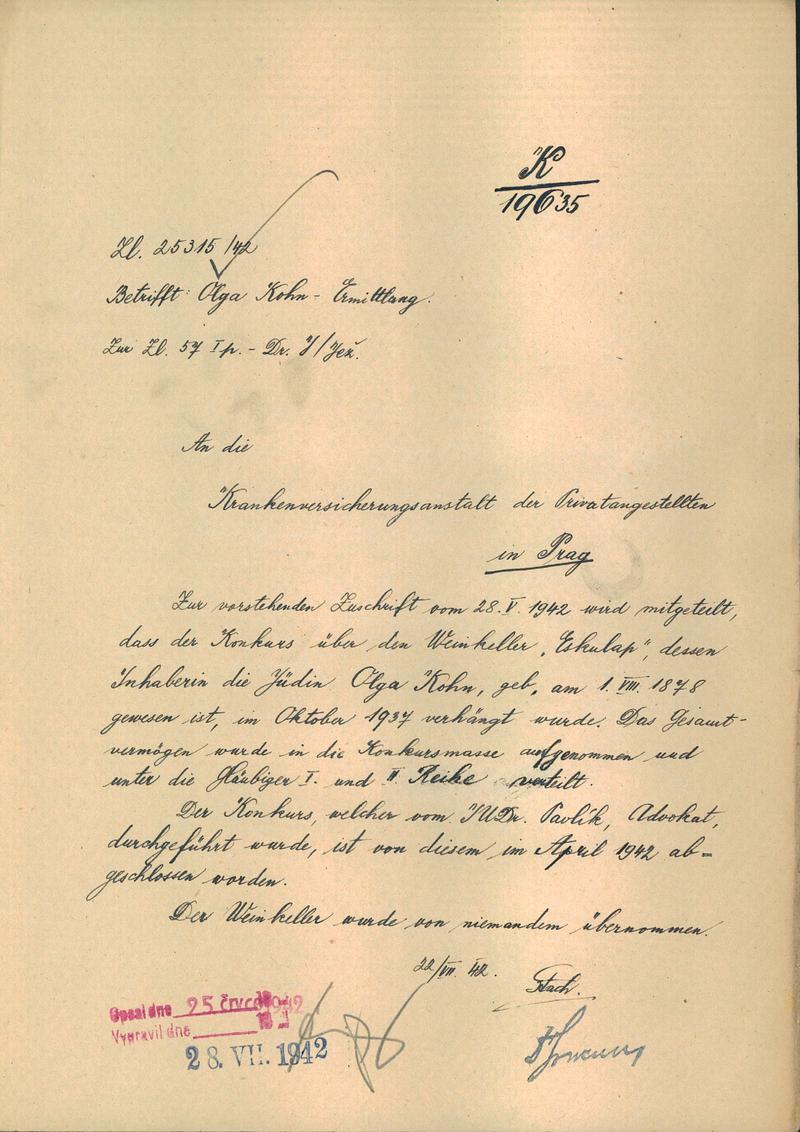 K
19635
Zl. 25315/42
Betrifft: Olga Kohn - Ermittlung.
Zur Zl. 57 I p. - Dr. J/Jež.
An die
Krankenversicherungsanstalt der Privatangestellten
in Prag
Zur vorstehenden Zuschrift vom 28. V. 1942 wird mitgeteilt,
dass der Konkurs über den Weinkeller „Eskulap", dessen
Inhaberin die Jüdin Olga Kohn, geb. am 1. VIII. 1878
gewesen ist, im Oktober 1937 verhängt wurde. Das Gesamt-
vermögen wurde in die Konkursmasse aufgenommen und
unter die Gläubiger I. und II Reihe verteilt.
Der Konkurs, welcher vom JUDr. Pavlík, Advokat,
durchgeführt wurde, ist von diesem im April 1942 ab=
geschlossen worden.
Der Weinkeller wurde von niemandem übernommen.
22/VII. 42.
Opsal dne 25 července 1942
Vypravil dne
28. VII. 1942